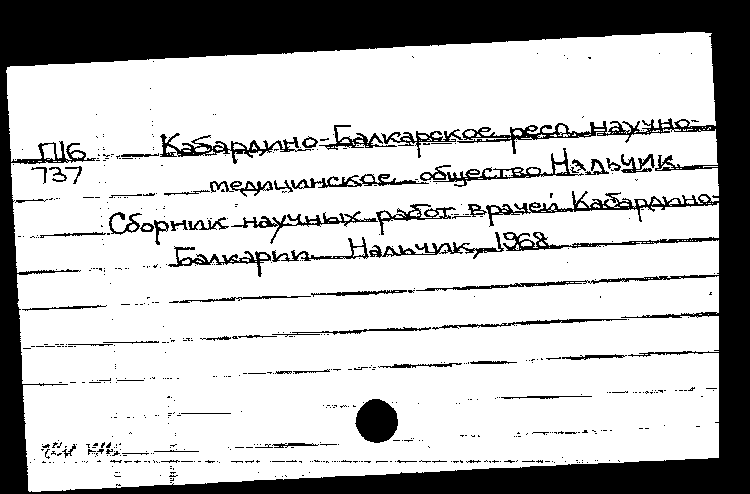 П16 Кабардино-Балкарское респ. научно-
737 медицинское общество. Нальчик.
Сборник научных работ врачей Кабардино-
Балкарии. Нальчик, 1968